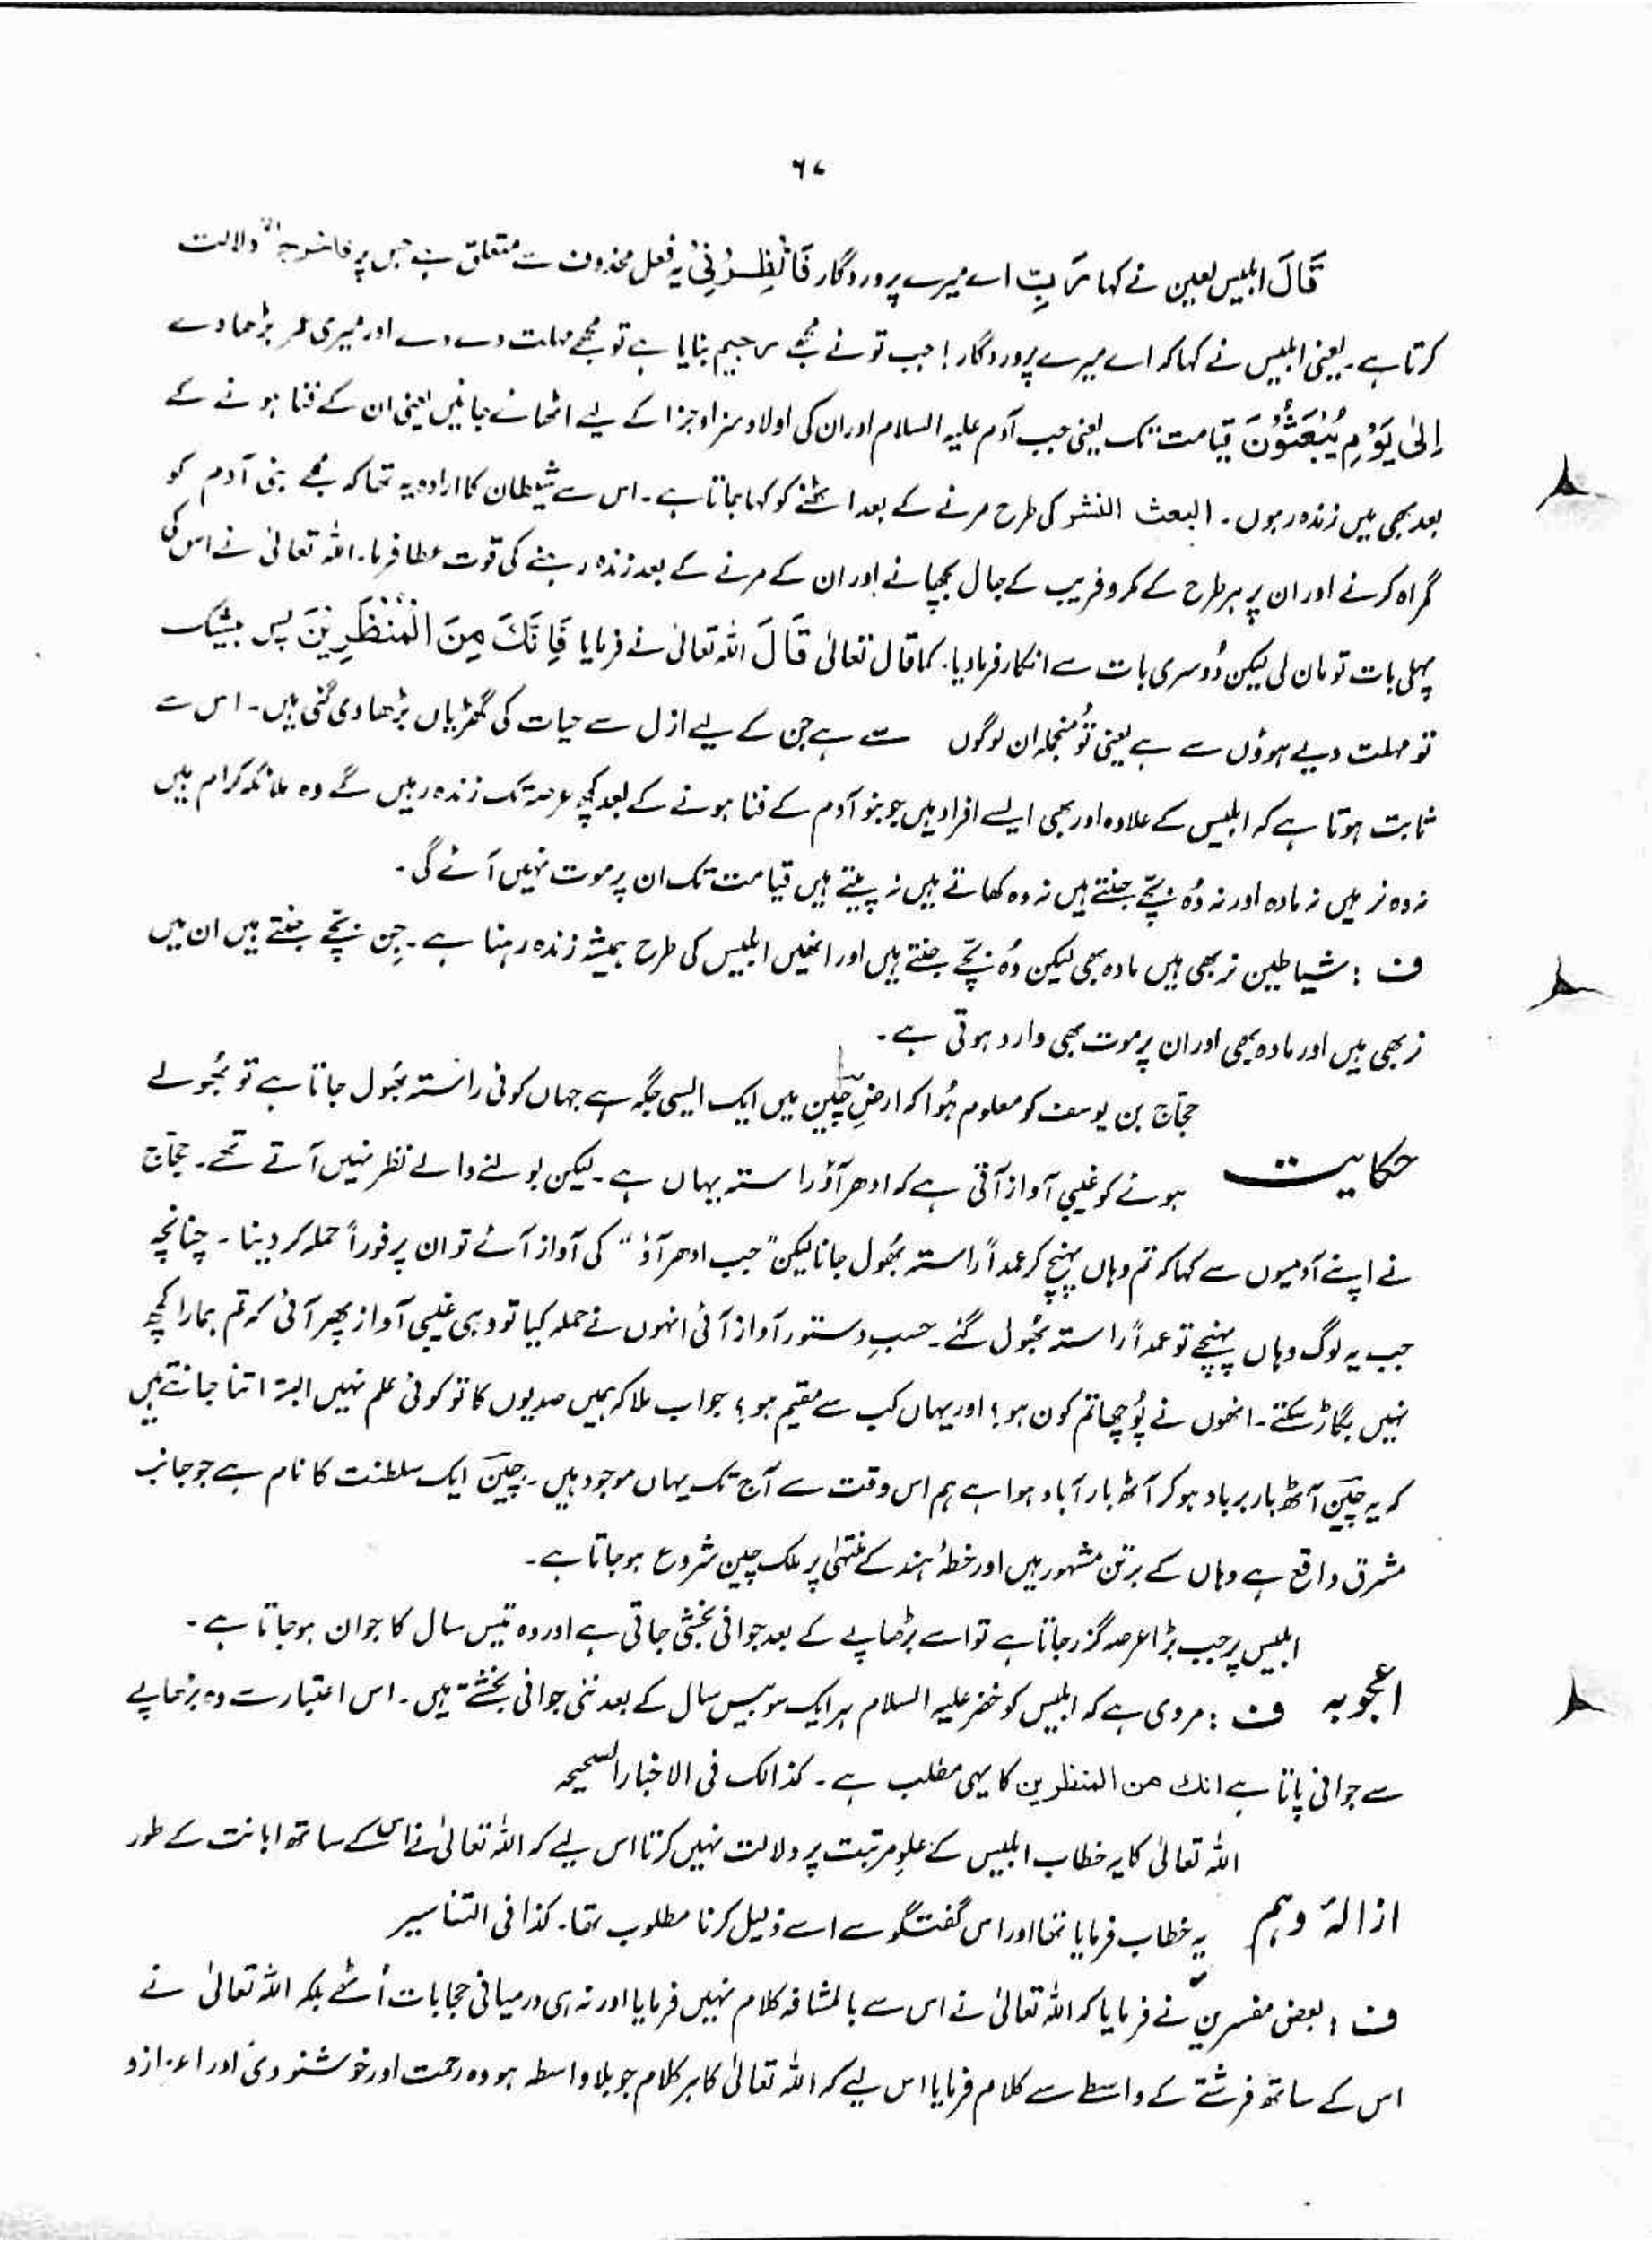 ۶۷
قَالَ ابلیس لعین نے کہا رَبِّ اے میرے پروردگار فَاَنْظِرْنِیْ یہ فعل محذوف سے متعلق ہے جس پر فاخرج الخ دلالت
کرتا ہے۔ یعنی ابلیس نے کہا کہ اے میرے پروردگار! جب تو نے مجھے رجیم بنایا ہے تو مجھے مہلت دے دے اور میری عمر بڑھا دے
اِلیٰ یَوْمِ یُبْعَثُوْنَ قیامت تک یعنی جب آدم علیہ السلام اور ان کی اولاد سزا و جزا کے لیے اٹھائے جائیں یعنی ان کے فنا ہونے کے
بعد بھی میں زندہ رہوں۔ البعث النشر کی طرح مرنے کے بعد اٹھنے کو کہا جاتا ہے۔ اس سے شیطان کا ارادہ یہ تھا کہ مجھے بنی آدم کو
گمراہ کرنے اور ان پر ہر طرح کے مکر و فریب کے جال بچھانے اور ان کے مرنے کے بعد زندہ رہنے کی قوت عطا فرما۔ اللہ تعالیٰ نے اس کی
پہلی بات تو مان لی لیکن دُوسری بات سے انکار فرما دیا۔ کما قال تعالیٰ قَالَ اللہ تعالیٰ نے فرمایا فَاِنَّكَ مِنَ الْمُنْظَرِیْنَ پس بیشک
تو مہلت دیے ہوؤں سے ہے یعنی تُو منجملہ ان لوگوں سے ہے جن کے لیے ازل سے حیات کی گھڑیاں بڑھا دی گئی ہیں۔ اس سے
ثابت ہوتا ہے کہ ابلیس کے علاوہ اور بھی ایسے افراد ہیں جو بنو آدم کے فنا ہونے کے بعد کچھ عرصہ تک زندہ رہیں گے وہ ملائکہ کرام ہیں
نہ وہ نر ہیں نہ مادہ اور نہ وُہ بچّے جنتے ہیں نہ وہ کھاتے ہیں نہ پیتے ہیں قیامت تک ان پر موت نہیں آئے گی۔
ف : شیاطین نر بھی ہیں مادہ بھی لیکن وُہ بچّے جنتے ہیں اور انھیں ابلیس کی طرح ہمیشہ زندہ رہنا ہے۔ جِن بچّے جنتے ہیں ان میں
نر بھی ہیں اور مادہ بھی اور ان پر موت بھی وارد ہوتی ہے۔
حجّاج بن یوسف کو معلوم ہُوا کہ ارضِ چین میں ایک ایسی جگہ ہے جہاں کوئی راستہ بھُول جاتا ہے تو بھُولے
حکایت ہونے کو غیبی آواز آتی ہے کہ ادھر آؤ راستہ یہاں ہے۔ لیکن بولنے والے نظر نہیں آتے تھے۔ حجّاج
نے اپنے آدمیوں سے کہا کہ تم وہاں پہنچ کر عمداً راستہ بھُول جانا لیکن "جب ادھر آؤ" کی آواز آئے تو ان پر فوراً حملہ کر دینا۔ چنانچہ
جب یہ لوگ وہاں پہنچے تو عمداً راستہ بھُول گئے۔ حسبِ دستور آواز آئی انہوں نے حملہ کیا تو وہی غیبی آواز پھر آئی کہ تم ہمارا کچھ
نہیں بگاڑ سکتے۔ انھوں نے پُوچھا تم کون ہو؟ اور یہاں کب سے مقیم ہو؟ جواب ملا کہ ہمیں صدیوں کا تو کوئی علم نہیں البتہ اتنا جانتے ہیں
کہ یہ چین آٹھ بار برباد ہو کر آٹھ بار آباد ہوا ہے ہم اس وقت سے آج تک یہاں موجود ہیں۔ چین ایک سلطنت کا نام ہے جو جانب
مشرق واقع ہے وہاں کے برتن مشہور ہیں اور خطۂ ہند کے منتہیٰ پر ملک چین شروع ہو جاتا ہے۔
ابلیس پر جب بڑا عرصہ گزر جاتا ہے تو اسے بڑھاپے کے بعد جوانی بخشی جاتی ہے اور وہ تیس سال کا جوان ہو جاتا ہے۔
اعجوبہ ف : مروی ہے کہ ابلیس کو خضر علیہ السلام ہر ایک سو بیس سال کے بعد نئی جوانی بخشتے ہیں۔ اس اعتبار سے وہ بڑھاپے
سے جوانی پاتا ہے انك من المنظرین کا یہی مطلب ہے۔ کذالک فی الاخبار الصحیحہ
اللہ تعالیٰ کا یہ خطاب ابلیس کے علوِ مرتبت پر دلالت نہیں کرتا اس لیے کہ اللہ تعالیٰ نے اس کے ساتھ اہانت کے طور
ازالۂ وہم یہ خطاب فرمایا تھا اور اس گفتگو سے اسے ذلیل کرنا مطلوب تھا۔ کذا فی التفاسیر
ف : بعض مفسرین نے فرمایا کہ اللہ تعالیٰ نے اس سے بالمشافہ کلام نہیں فرمایا اور نہ ہی درمیانی حجابات اُٹھے بلکہ اللہ تعالیٰ نے
اس کے ساتھ فرشتے کے واسطے سے کلام فرمایا اس لیے کہ اللہ تعالیٰ کا ہر کلام جو بلا واسطہ ہو وہ رحمت اور خوشنودی اور اعزاز و